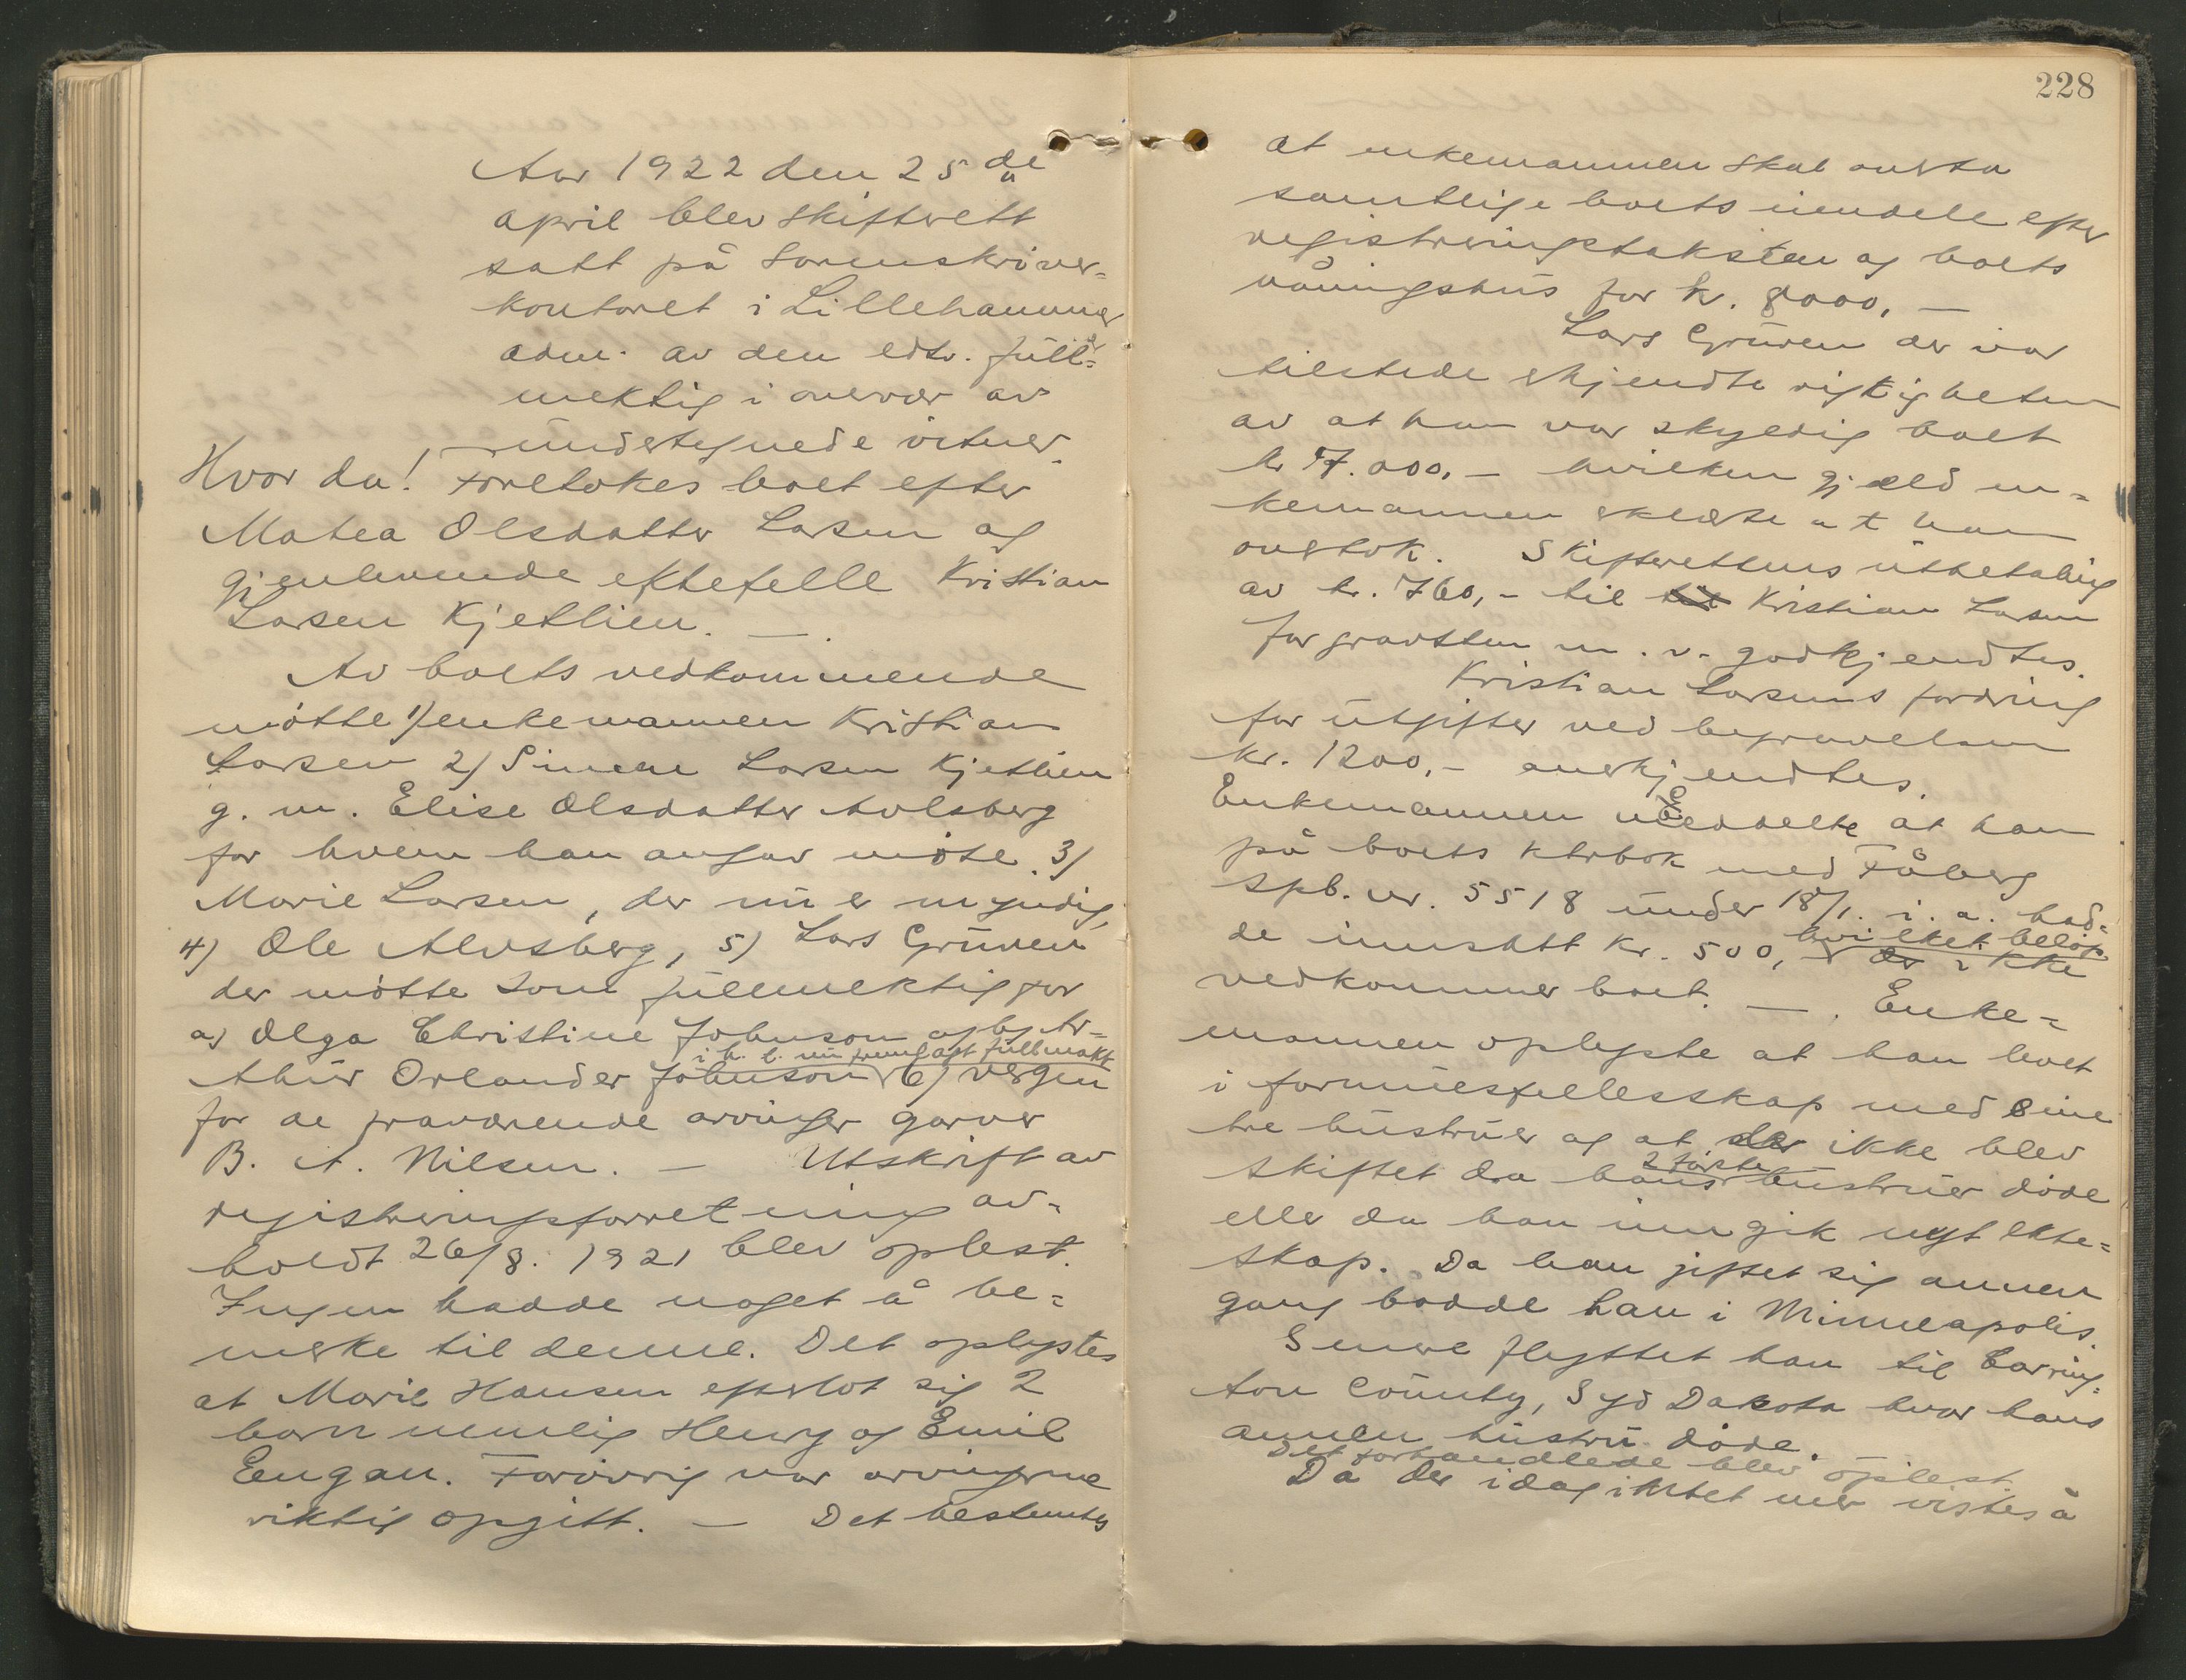 Aar 1922 den 25 de
april blev skifterett
satt på Sorenskriver-
kontoret i Lillehammer
adm. av den edsv. full-
mektig i overvær av
undertegnede vitner.
Hvor da! Foretokes boet efter
Matea Olsdatter Larsen og
gjenlevende ektefelle Kristian
Larsen Kjetlien. —.
Av boets vedkommende
møtte 1) enkemannen Kristian
Larsen 2) Simen Larsen Kjetlien
g. m. Elise Olsdatter Aulsberg
for hvem han angav møte. 3)
Marie Larsen, der nu er myndig,
4) Ole Alvsberg, 5) Lars Gruven
der møtte som fullmektig for
a) Olga Christine Johnson og b) Ar-
i h. t. nu fremlagt fullmakt
thur Orlander Johnson 6) vergen
for de fraværende arvinger garver
B. A. Nilsen. — Utskrift av
registreringsforretning av-
holdt 26/8. 1921 blev oplest.
Ingen hadde noget å be-
merke til denne. Det oplystes
at Marie Hansen efterlot sig 2
barn nemlig Henry og Emil
Engan. Forøvrig var arvingerne
riktig opgitt. — Det bestemtes
228
at enkemannen skal overta
samtlige boets eiendele efter
registreringstaksten og boets
våningshus for kr. 8000,—
Lars Gruven der var
tilstede erkjendte rigtigheten
av at han var skyldig boet
kr 7.000,— hvilken gjæld en-
kemannen erklærte at han
overtok. Skifterettens utbetaling
av kr. 760,- til Kristian Larsen
for gravsten m. v. godkjendtes.
Kristian Larsens fordring
for utgifter ved begravelsen
kr. 1200,- anerkjendtes.
Enkemannen meddelte at han
på boets ktrbok med Fåberg
spb. nr. 5518 under 18/1. i. a. had-
hvilket beløp
de innsatt kr. 500,- der ikke
vedkommer boet. —. Enke-
mannen oplyste at han levet
i formuesfellesskap med sine
tre hustruer og at der ikke blev
2 første
skiftet da hans hustruer døde
eller da han inngik nyt ekte-
skap. Da han giftet sig annen
gang bodde han i Minneapolis.
Senere flyttet han til Carring-
ton County, Syd Dakota hvor hans
annen hustru døde.
Det forhandlede blev oplest.
Da der idag intet mer vistes å